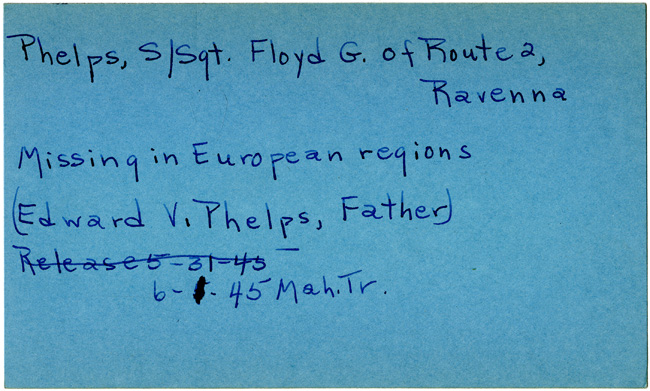 Phelps, S/Sgt. Floyd G. of Route 2,
Ravenna
Missing in European regions
(Edward V. Phelps, Father)
Release 5-31-45
6- - 45 Mah. Tr.